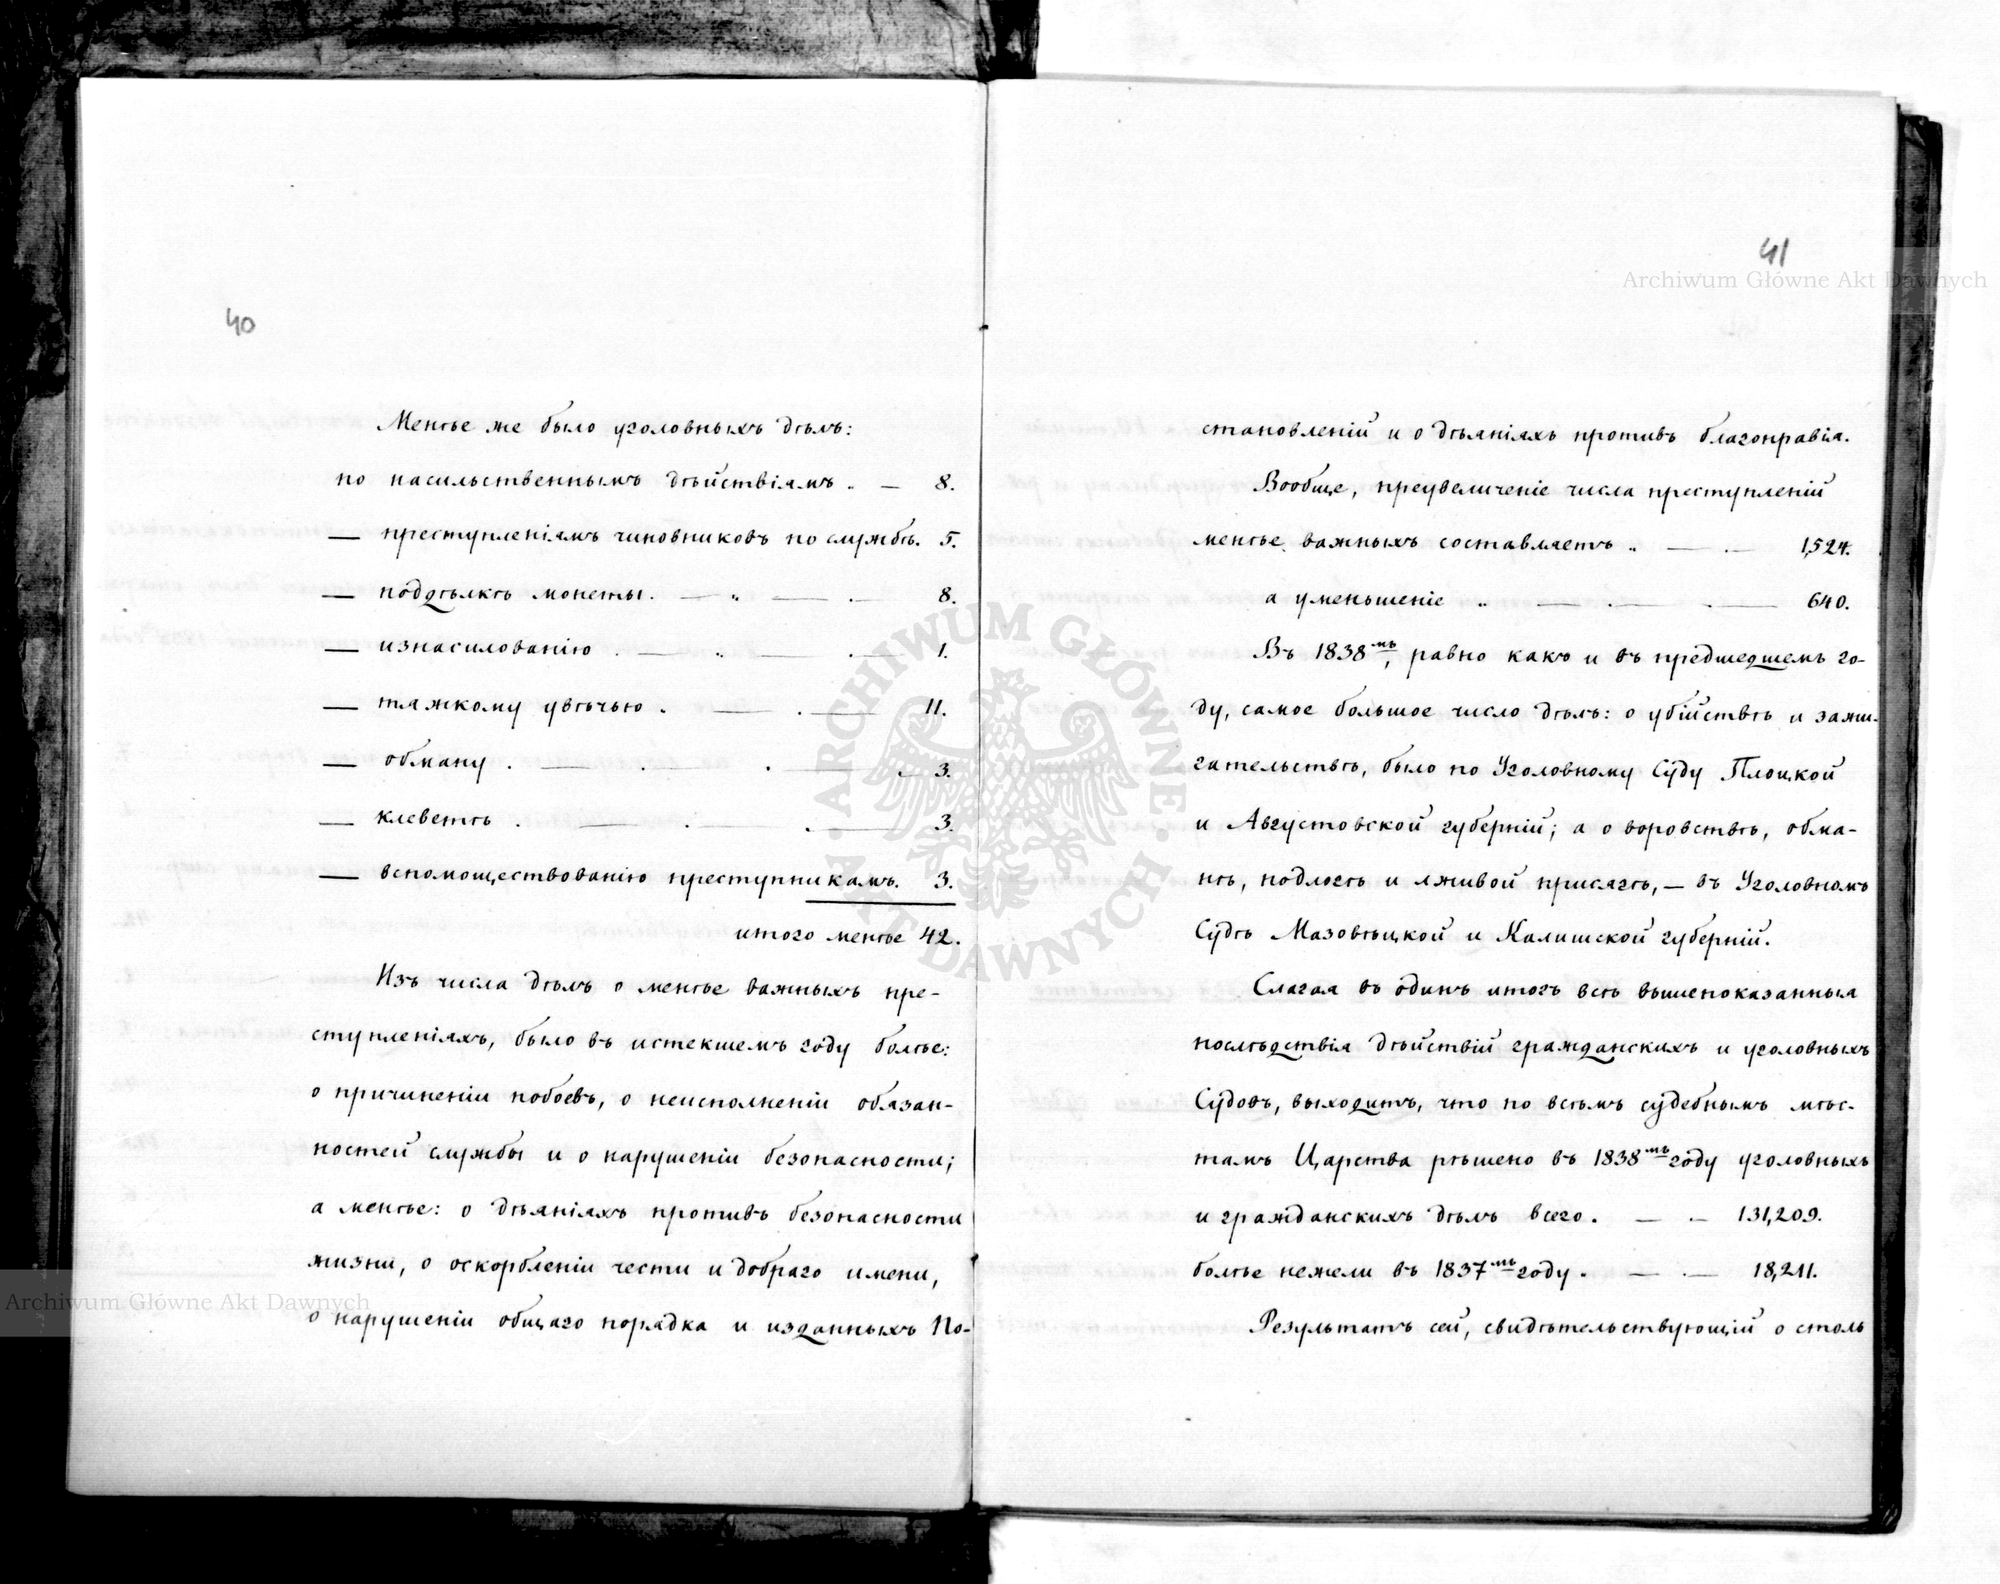 40
Менѣе же было уголовныхъ дѣлъ:
по насильственнымъ дѣйствіямъ . — 8.
— преступленіямъ чиновниковъ по службѣ. 5.
— поддѣлкѣ монеты. — „ — . — 8.
— изнасилованію . — „ — . — 1.
— тяжкому увѣчью . — . — 11.
— обману . — . — . — 3.
— клеветѣ . — . — . — 3.
— вспомоществованію преступникамъ. 3.
итого менѣе 42.
Изъ числа дѣлъ о менѣе важныхъ пре-
ступленіяхъ, было въ истекшемъ году болѣе:
о причиненіи побоевъ, о неисполненіи обязан-
ностей службы и о нарушеніи безопасности;
а менѣе: о дѣяніяхъ противъ безопасности
жизни, о оскорбленіи чести и добраго имени,
о нарушеніи общаго порядка и изданныхъ По-
41
становленій и о дѣяніяхъ противъ благонравія.
Вообще, преувеличеніе числа преступленій
менѣе важныхъ составляетъ „ — . — 1,524.
а уменьшеніе „ — . — . — 640.
Въ 1838мъ, равно какъ и въ предшедшемъ го-
ду, самое большое число дѣлъ: о убійствѣ и зажи-
гательствѣ, было по Уголовному Суду Плоцкой
и Августовской губерній; а о воровствѣ, обма-
нѣ, подлогѣ и лживой присягѣ, — въ Уголовномъ
Судѣ Мазовѣцкой и Калишской губерній.
Слагая въ одинъ итогъ всѣ вышепоказанныя
послѣдствія дѣйствій гражданскихъ и уголовныхъ
Судовъ, выходитъ, что по всѣмъ судебнымъ мѣс-
тамъ Царства рѣшено въ 1838мъ году уголовныхъ
и гражданскихъ дѣлъ всего . — . — 131,209.
болѣе нежели въ 1837мъ году . — . — 18,211.
Результатъ сей, свидѣтельствующій о столь
Archiwum Główne Akt Dawnych
Archiwum Główne Akt Dawnych
ARCHIWUM GŁÓWNE · AKT DAWNYCH ·